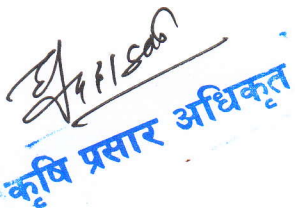 कृषि प्रसार अधिकृत